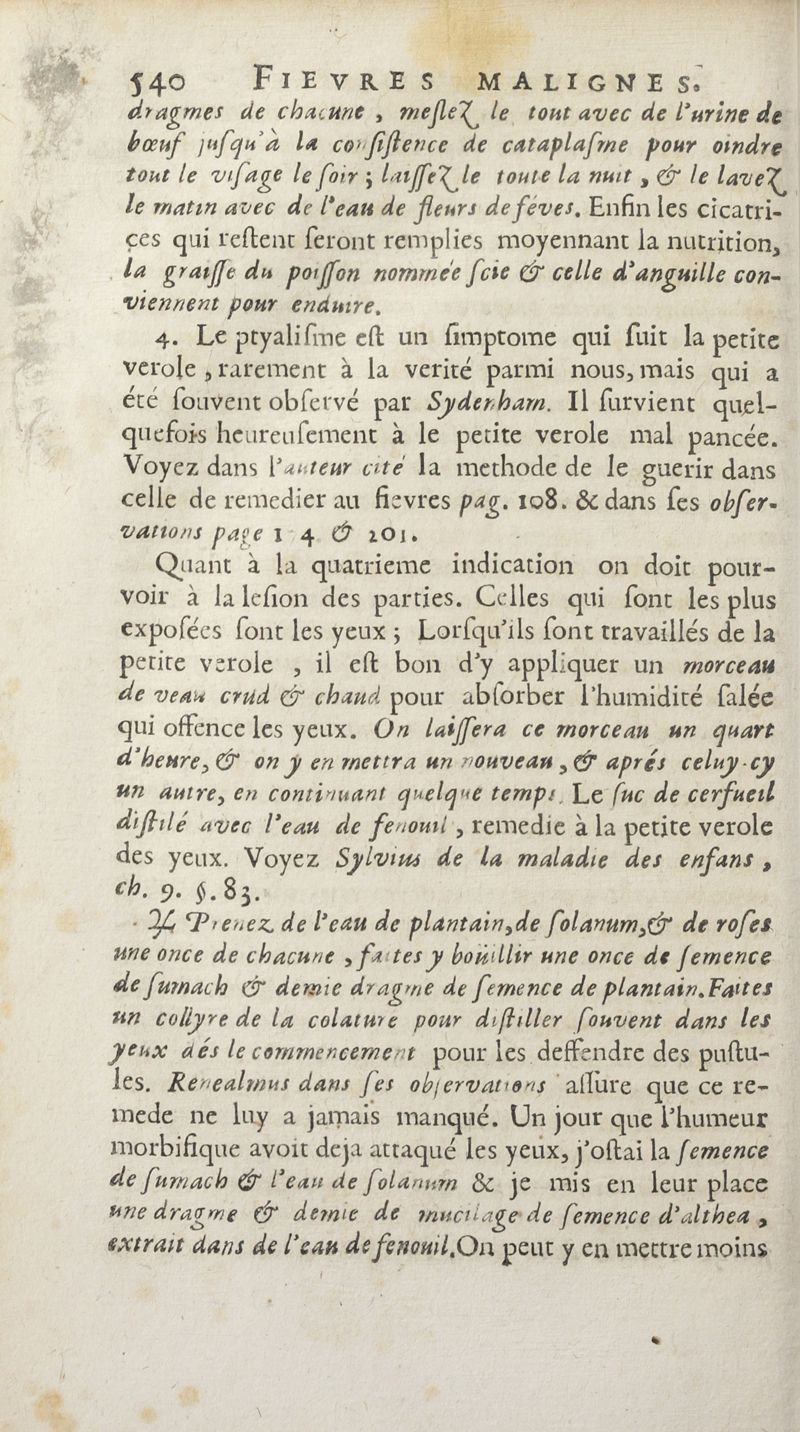 540 FIEVRES MALIGNES.
dragmes de chacune , meſlez le tout avec de l'urine de
bœuf juſqu'à la conſiſtence de cataplaſme pour oindre
tout le viſage le ſoir ; laiſſez le toute la nuit , & le lavez
le matin avec de l'eau de fleurs de féves. Enfin les cicatri-
ces qui reſtent ſeront remplies moyennant la nutrition,
la graiſſe du poiſſon nommée ſcie & celle d'anguille con-
viennent pour enduire.
4. Le ptyaliſme eſt un ſimptome qui ſuit la petite
verole , rarement à la verité parmi nous, mais qui a
été ſouvent obſervé par Syderham. Il ſurvient quel-
quefois heureuſement à le petite verole mal pancée.
Voyez dans l'auteur cité la methode de le guerir dans
celle de remedier au fievres pag. 108. & dans ſes obſer-
vations page 1 4 & 201.
Quant à la quatrieme indication on doit pour-
voir à la leſion des parties. Celles qui ſont les plus
expoſées ſont les yeux ; Lorſqu'ils ſont travaillés de la
petite verole , il eſt bon d'y appliquer un morceau
de veau crud & chaud pour abſorber l'humidité ſalée
qui offence les yeux. On laiſſera ce morceau un quart
d'heure, & on y en mettra un nouveau , & aprés celuy-cy
un autre, en continuant quelque temps. Le ſuc de cerfueil
diſtilé avec l'eau de fenouil , remedie à la petite verole
des yeux. Voyez Sylvius de la maladie des enfans ,
ch. 9. §. 83.
♃ Prenez de l'eau de plantain, de ſolanum, & de roſes
une once de chacune , faites y boüillir une once de ſemence
de ſumach & demie dragme de ſemence de plantain. Faites
un collyre de la colature pour diſtiller ſouvent dans les
yeux dés le commencement pour les deffendre des puſtu-
les. Renealmus dans ſes obſervations aſſure que ce re-
mede ne luy a jamais manqué. Un jour que l'humeur
morbifique avoit deja attaqué les yeux, j'oſtai la ſemence
de ſumach & l'eau de ſolanum & je mis en leur place
une dragme & demie de mucilage de ſemence d'althea ,
extrait dans de l'eau de fenouil. On peut y en mettre moins